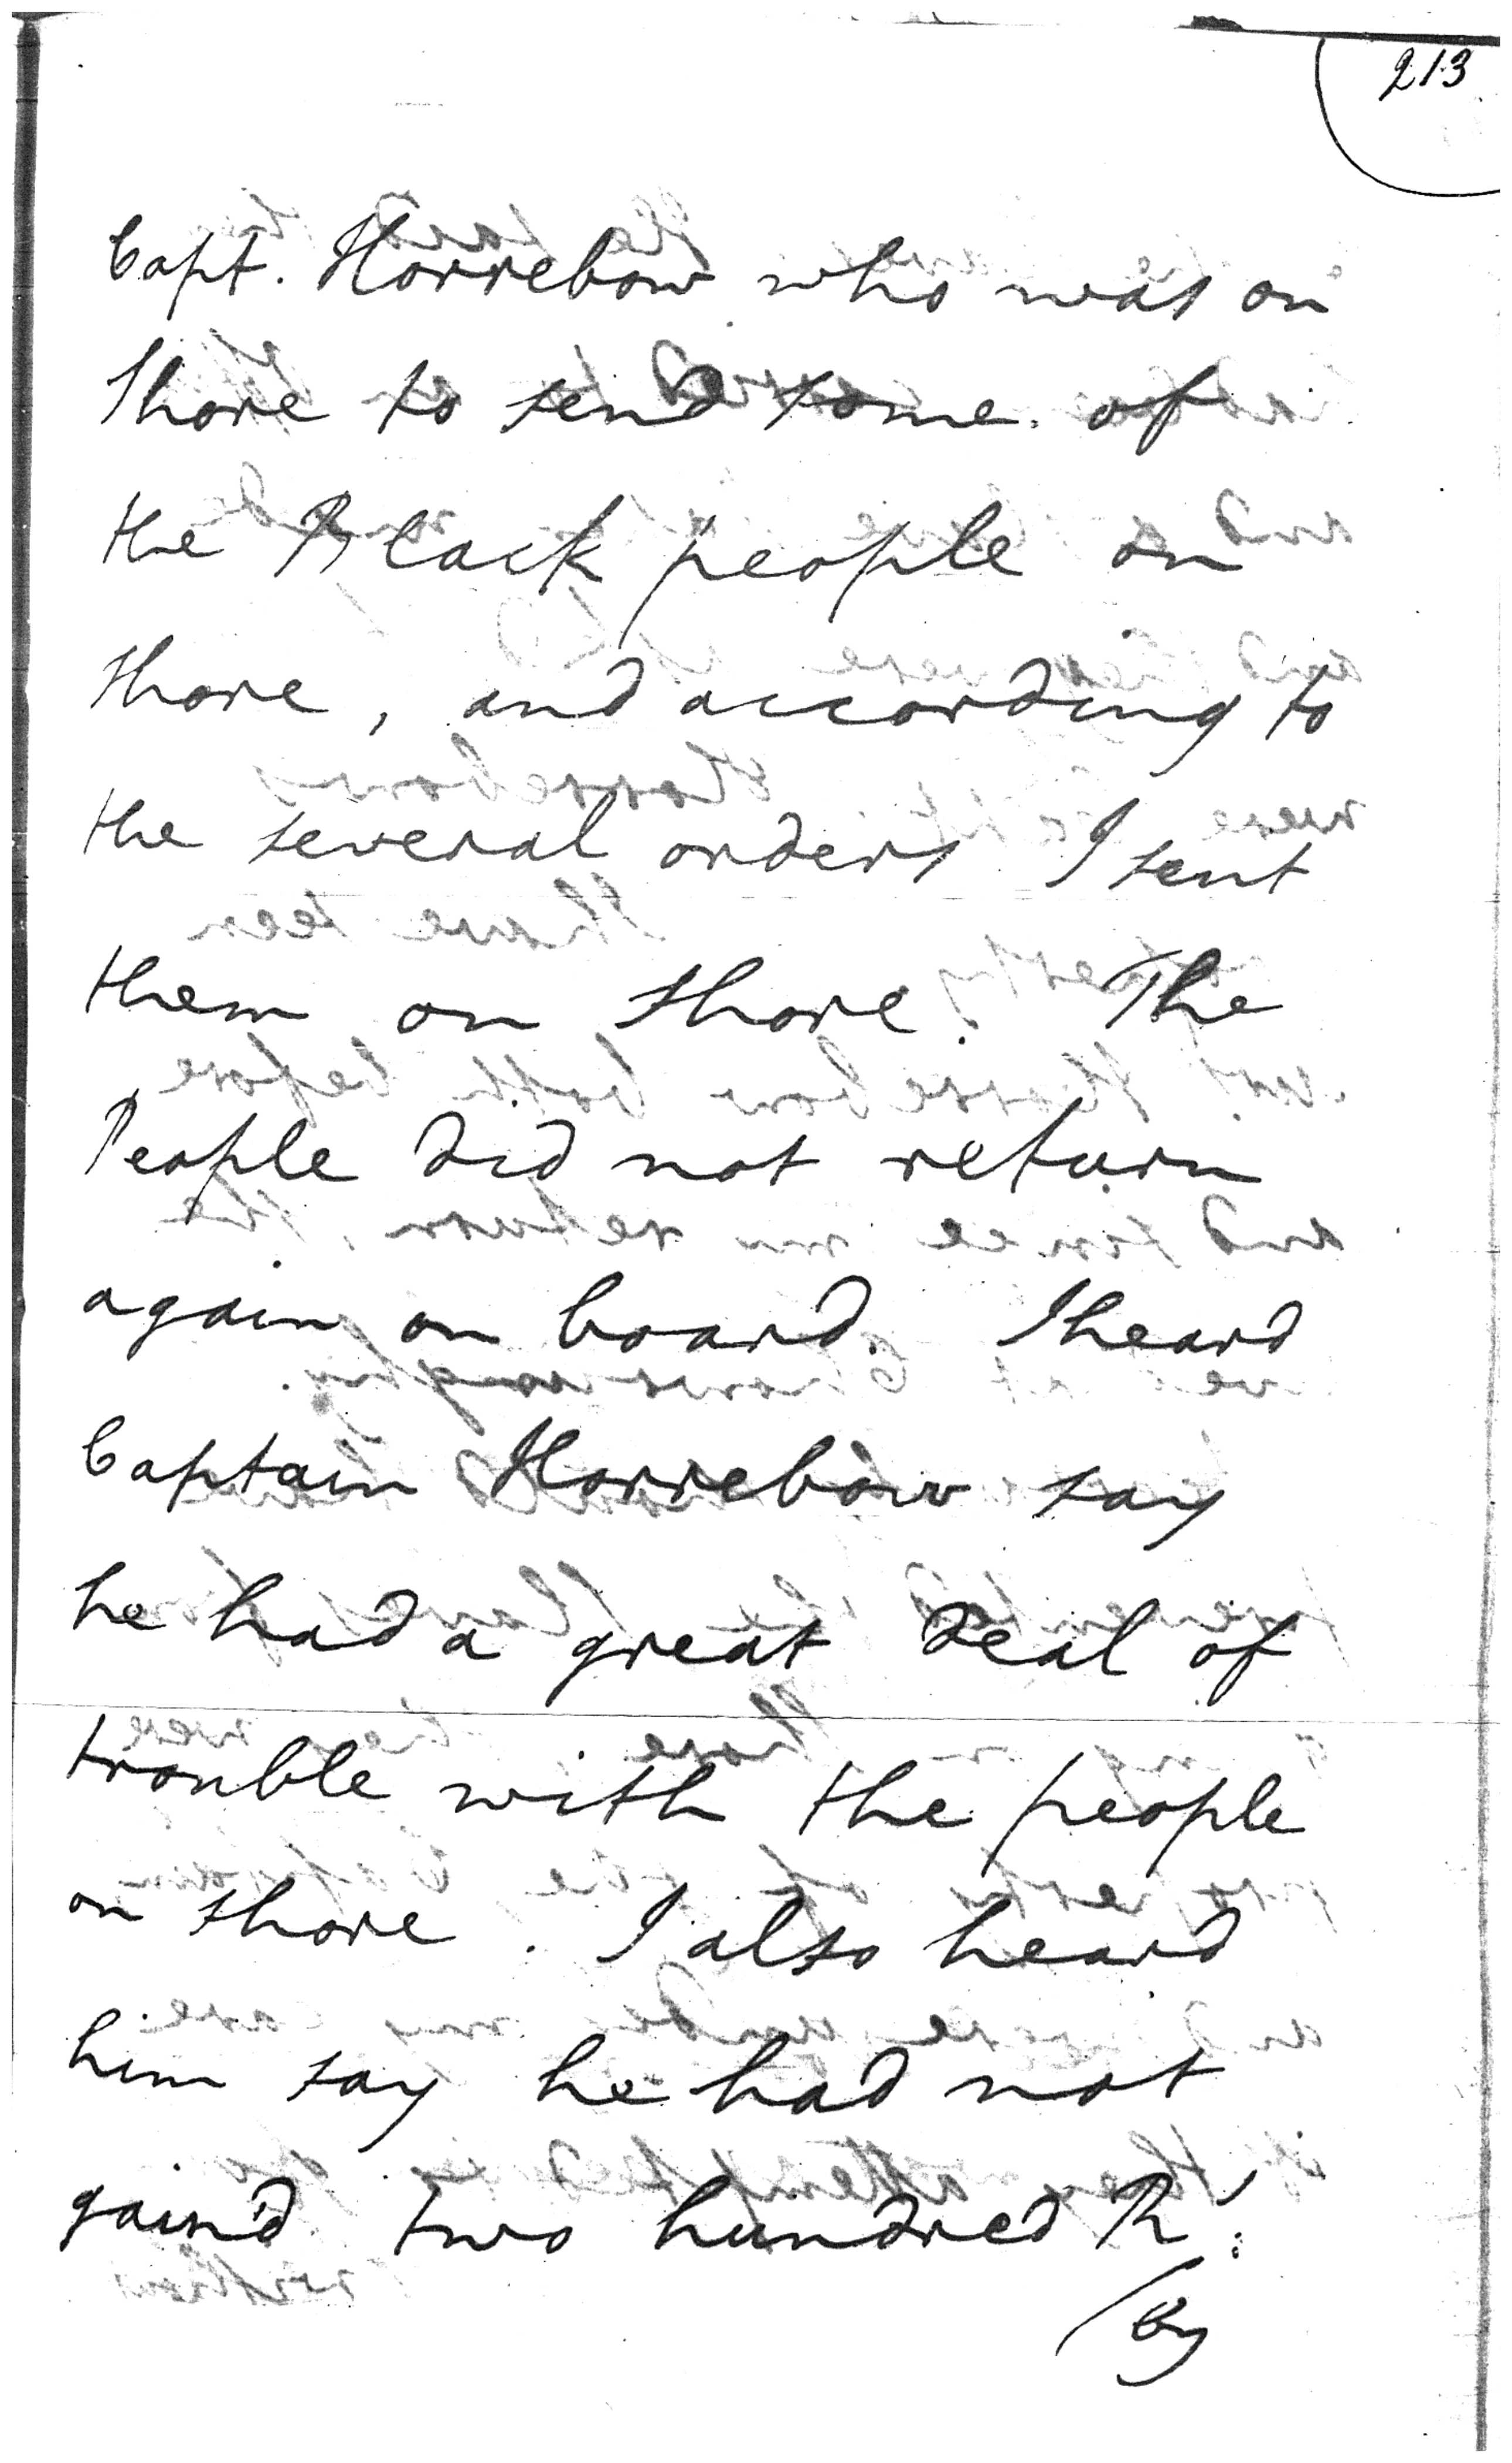 213
Capt. Horrebow who was on
Shore to send some of
the Black people on
shore, and according to
the several orders I sent
them on shore. The
People did not return
again on board. I heard
Captain Horrebow say
he had a great deal of
trouble with the people
on shore. I also heard
him say he had not
gain'd two hundred Rs.
by